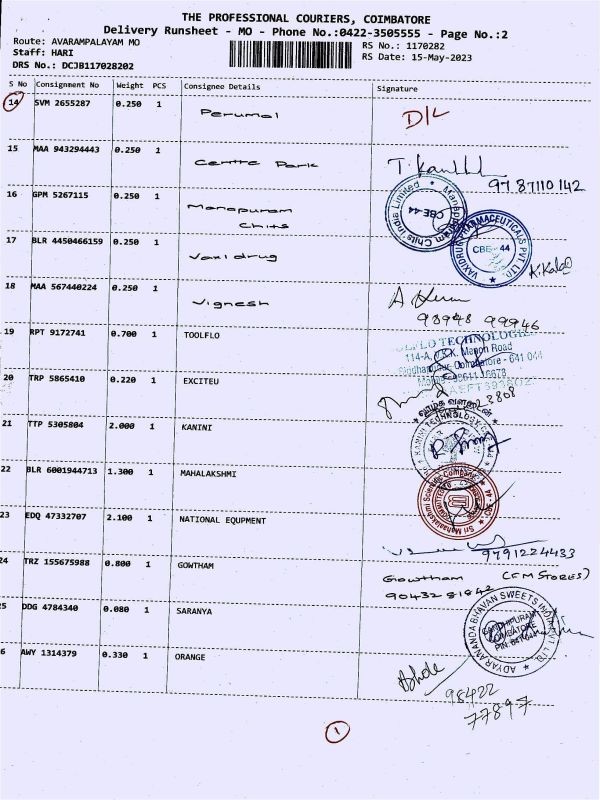 THE PROFESSIONAL COURIERS, COIMBATORE
Delivery Runsheet - MO - Phone No.:0422-3505555 - Page No.:2
Route: AVARAMPALAYAM MO
Staff: HARI
DRS No.: DCJB117028202
RS No.: 1170282
RS Date: 15-May-2023
S No Consignment No Weight PCS Consignee Details Signature
14 SVM 2655287 0.250 1 Perumal D/L
15 MAA 943294443 0.250 1 Centre Park
97 87110 142
16 GPM 5267115 0.250 1 Manapuram Chits
Manappuram Chits India Limited
CBE-44
17 BLR 4450466159 0.250 1 Vaxidrug
VAXIDRUG PHARMACEUTICALS PVT. LTD.
CBE - 44
K.Kala
18 MAA 567440224 0.250 1 Vignesh
98948 99946
19 RPT 9172741 0.700 1 TOOLFLO
TECHNOLOGIE
114-A, Menon Road
Coimbatore - 641 044
20 TRP 5865410 0.220 1 EXCITEU
21 TTP 5305804 2.000 1 KANINI
KANINI TECHNOLOGY
22 BLR 6001944713 1.300 1 MAHALAKSHMI
Sri Mahalakshmi Scientific Company
23 EDQ 47332707 2.100 1 NATIONAL EQUPMENT
9791224433
24 TRZ 155675988 0.800 1 GOWTHAM
Gowtham (FM STORES)
90432 81842
25 DDG 4784340 0.080 1 SARANYA
ADYAR ANANDA BHAVAN SWEETS INDIA PVT. LTD
GANDHIPURAM
COIMBATORE
26 AWY 1314379 0.330 1 ORANGE
98422
77897
1